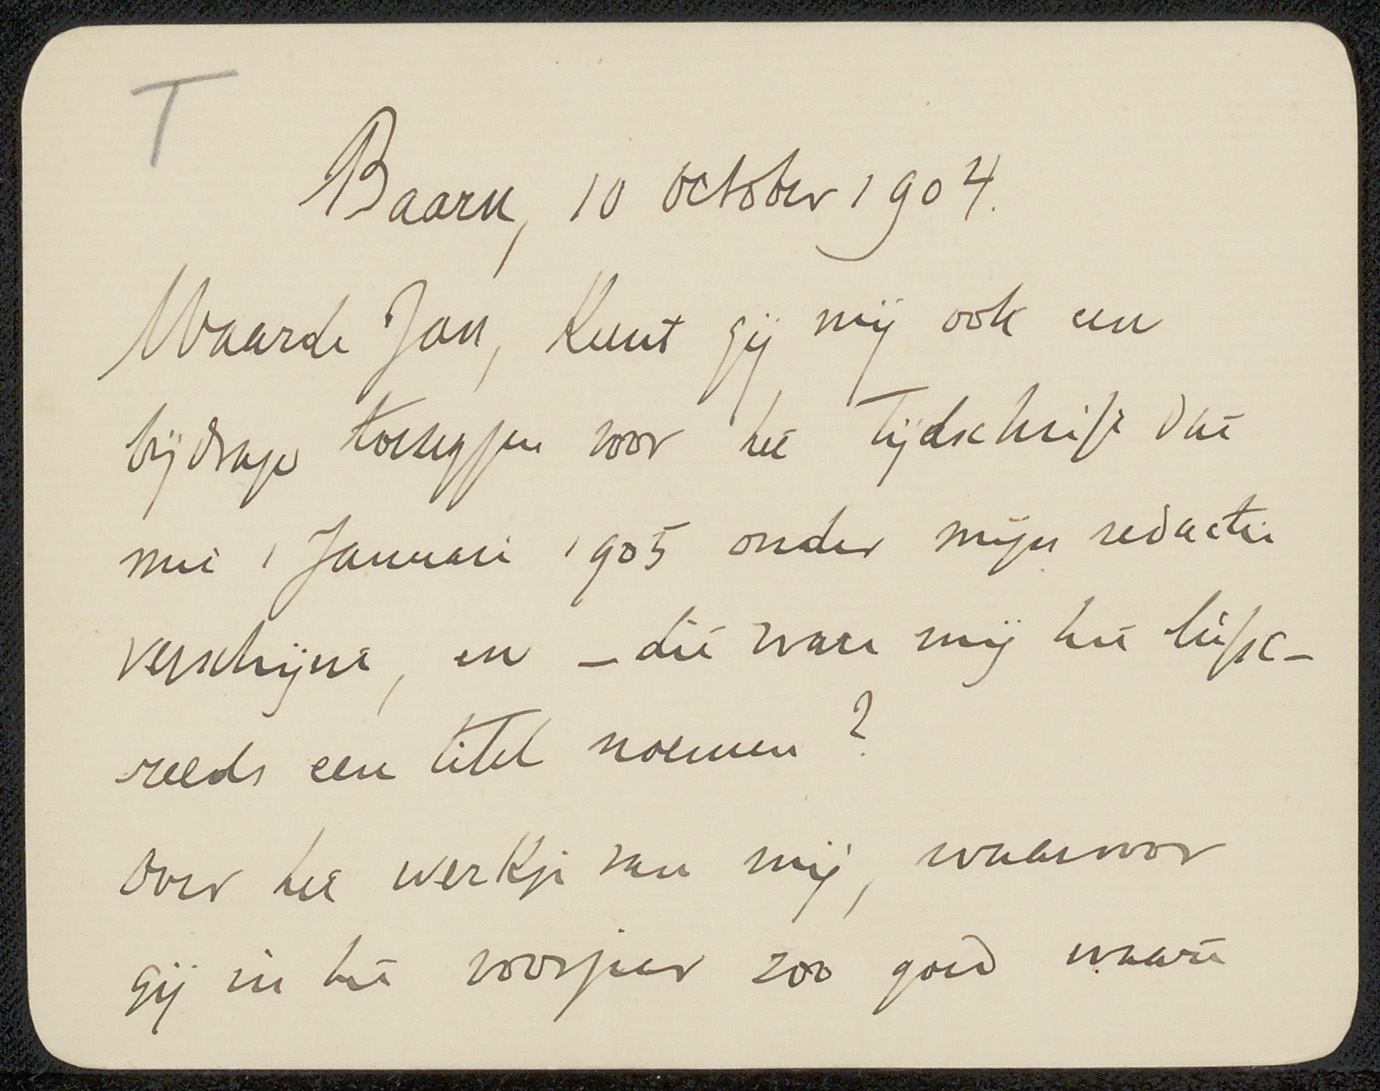 T
Baarn, 10 october 1904.
Waarde Jan, Kunt gij mij ook een
bijdrage toezeggen voor het tijdschrift dat
met 1 Januari 1905 onder mijn redactie
verschijnt, en – dit ware mij het liefst –
reeds een titel noemen?
Over het werkje van mij, waarvoor
gij in het voorjaar zoo goed waart